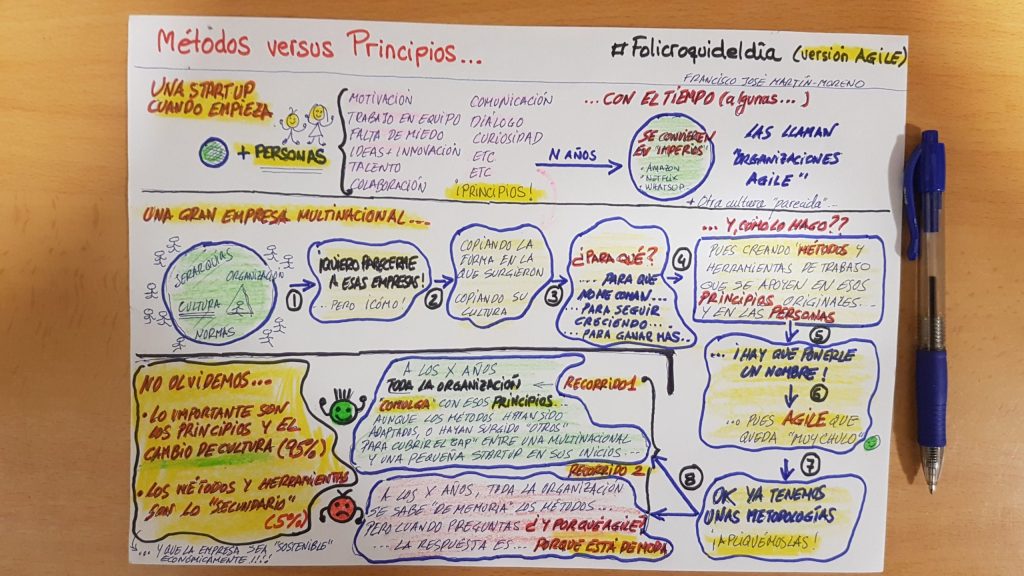 Métodos versus Principios...
#Folicroquideldía (versión AGILE)
FRANCISCO JOSÉ MARTÍN-MORENO
UNA STARTUP
CUANDO EMPIEZA
+ PERSONAS
MOTIVACIÓN
TRABAJO EN EQUIPO
FALTA DE MIEDO
IDEAS + INNOVACIÓN
TALENTO
COLABORACIÓN
COMUNICACIÓN
DIÁLOGO
CURIOSIDAD
ETC
ETC
¡PRINCIPIOS!
N AÑOS
...CON EL TIEMPO (algunas...)
SE CONVIERTEN
EN "IMPERIOS"
• AMAZON
• NETFLIX
• WHATSUP
LAS LLAMAN
"ORGANIZACIONES
AGILE"
+ Otra cultura "parecida"...
UNA GRAN EMPRESA MULTINACIONAL...
JERARQUÍAS
ORGANIZACIÓN
CULTURA
NORMAS
1
¡QUIERO PARECERME
A ESAS EMPRESAS!
... PERO ¡CÓMO!
2
COPIANDO LA
FORMA EN LA
QUE SURGIERON
COPIANDO SU
CULTURA
3
¿PARA QUÉ?
... PARA QUE
NO ME COMAN...
... PARA SEGUIR
CRECIENDO...
... PARA GANAR MÁS...
4
... Y, CÓMO LO HAGO??
PUES CREANDO "MÉTODOS" Y
HERRAMIENTAS DE TRABAJO
QUE SE APOYEN EN ESOS
PRINCIPIOS ORIGINALES...
Y EN LAS PERSONAS
5
... ¡HAY QUE PONERLE
UN NOMBRE!
6
... PUES AGILE QUE
QUEDA "MUY CHULO"
7
OK YA TENEMOS
UNAS METODOLOGÍAS
¡APLIQUÉMOSLAS!
8
A LOS X AÑOS
TODA LA ORGANIZACIÓN
"COMULGA" CON ESOS PRINCIPIOS...
AUNQUE LOS MÉTODOS HAYAN SIDO
ADAPTADOS, O HAYAN SURGIDO "OTROS"
PARA CUBRIR EL "GAP" ENTRE UNA MULTINACIONAL
Y UNA PEQUEÑA STARTUP EN SUS INICIOS...
RECORRIDO 1
RECORRIDO 2
A LOS X AÑOS, TODA LA ORGANIZACIÓN
SE SABE "DE MEMORIA" LOS MÉTODOS...
PERO CUANDO PREGUNTAS ¿Y POR QUÉ AGILE?
... LA RESPUESTA ES... PORQUE ESTÁ DE MODA
NO OLVIDEMOS...
• LO IMPORTANTE SON
LOS PRINCIPIOS Y EL
CAMBIO DE CULTURA (95%)
• LOS MÉTODOS Y HERRAMIENTAS
SON LO "SECUNDARIO"
(5%)
... Y QUE LA EMPRESA SEA "SOSTENIBLE"
ECONÓMICAMENTE!!!..